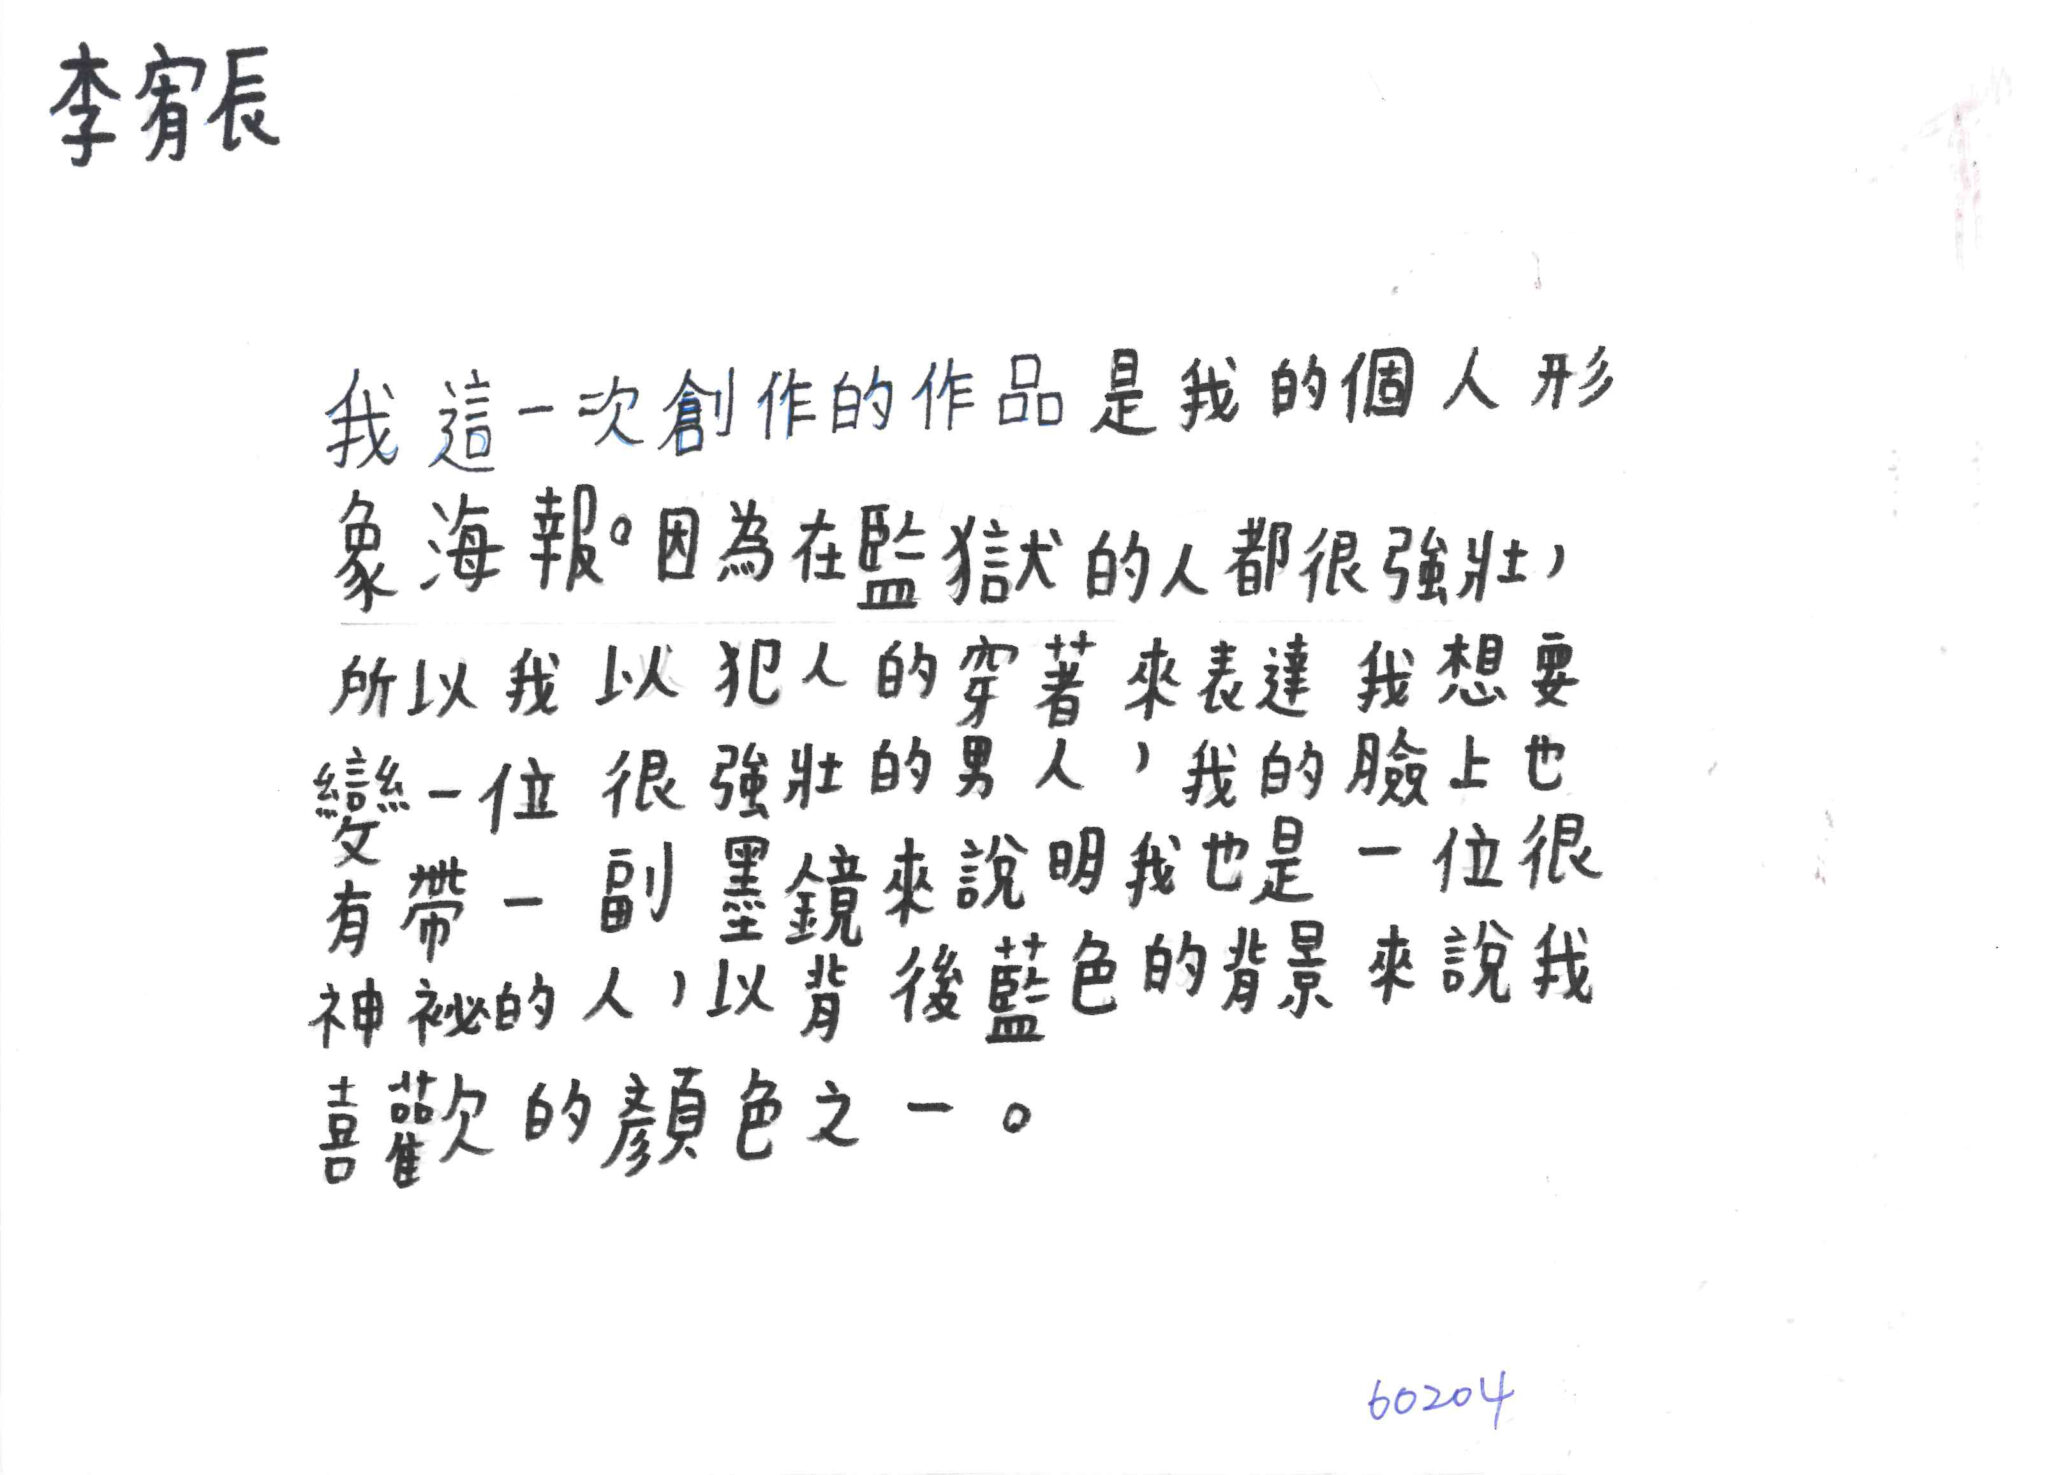 李宥長
我這一次創作的作品是我的個人形
象海報。因為在監獄的人都很強壯，
所以我以犯人的穿著來表達我想要
變一位很強壯的男人，我的臉上也
有帶一副墨鏡來說明我也是一位很
神祕的人，以背後藍色的背景來說我
喜歡的顏色之一。
60204